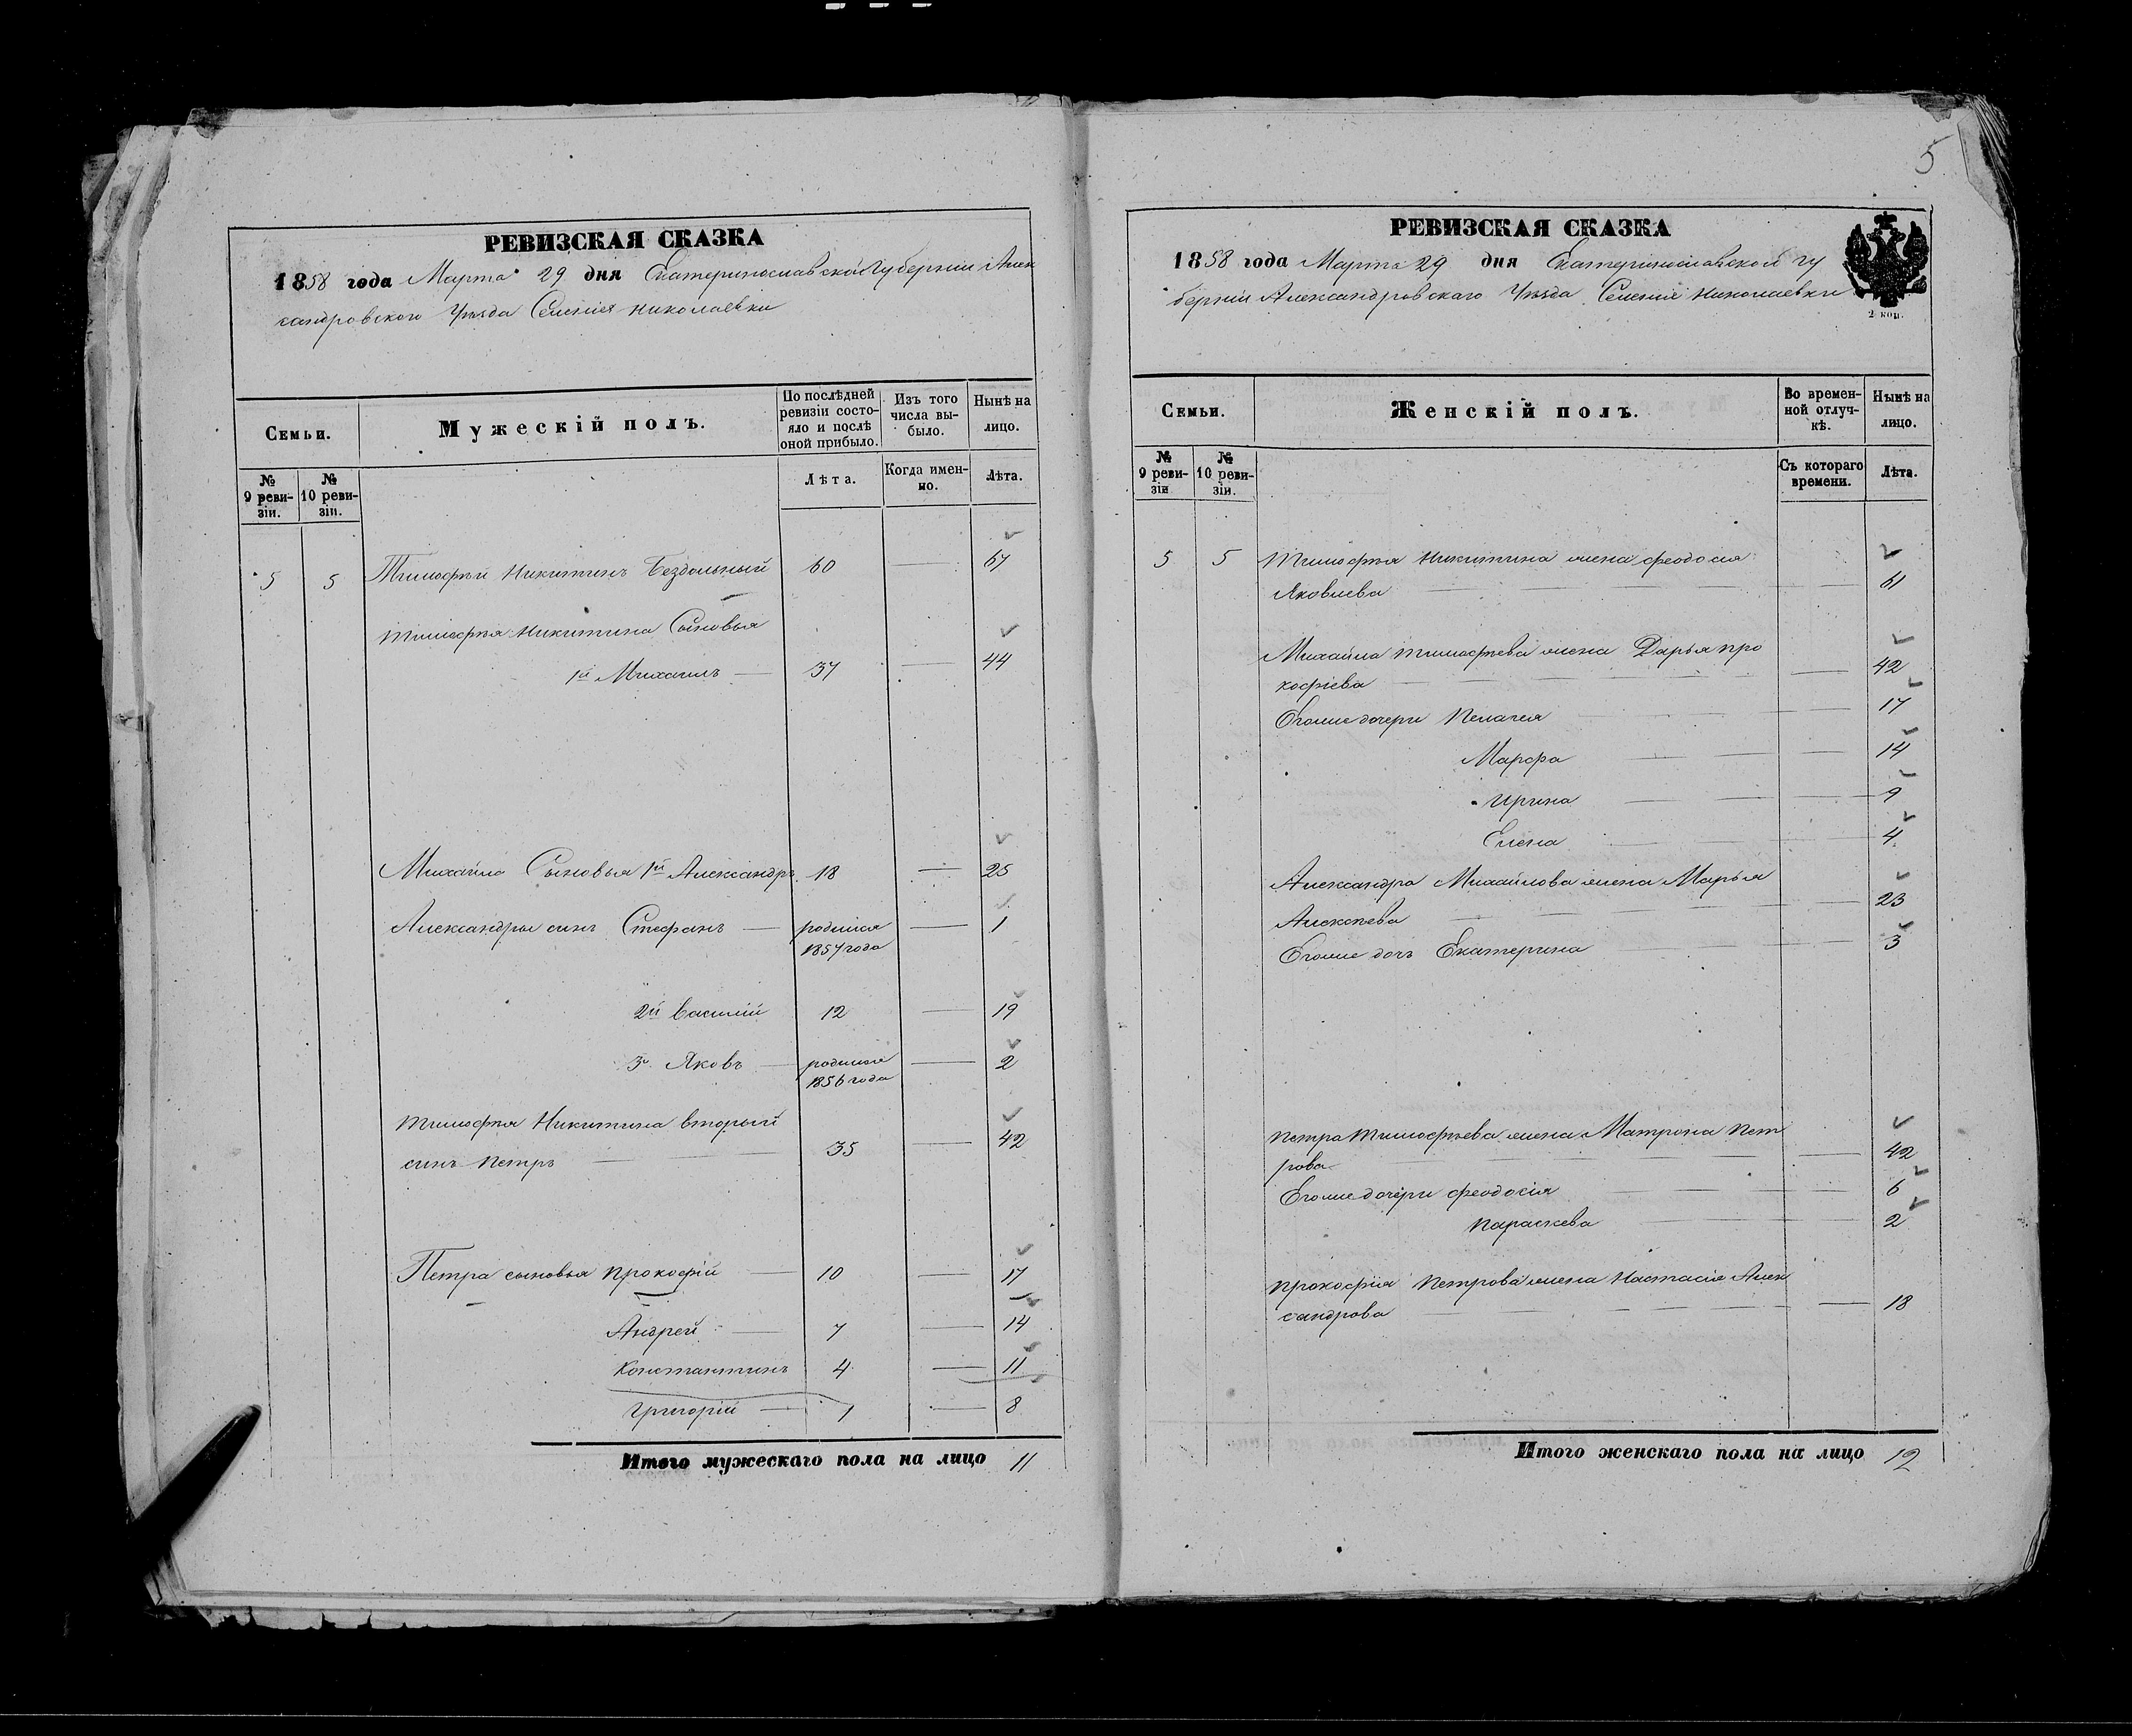 5
РЕВИЗСКАЯ СКАЗКА
1858 года Марта 29 дня Екатеринославской Губернии Алек
сандровского Уезда Селения Николаевки
Семьи.
Мужескій полъ.
По послѣдней ревизіи состо-
яло и послѣ оной прибыло.
Изъ того числа вы-
было.
Нынѣ на лицо.
№ 9 реви-
зіи.
№ 10 реви-
зіи.
Лѣта.
Когда имен-
но.
Лѣта.
5 5 Тимофѣй Никитинъ Бездольный 60 — 67
Тимофѣя Никитина Сыновья
1й Михаилъ — 37 — 44
Михайла Сыновья 1й Александръ 18 — 25
Александры сынъ Стефанъ — родился 1857 года — 1
2й Василій 12 — 19
3й Яковъ — родился 1856 года — 2
Тимофѣя Никитина вторый
сынъ Петръ — 35 — 42
Петра сыновья Прокофій — 10 — 17
Андрей — 7 — 14
Константинъ 4 — 11
Григорій — 1 — 8
Итого мужескаго пола на лицо 11
РЕВИЗСКАЯ СКАЗКА
1858 года Марта 29 дня Екатеринославской гу
берніи Александровскаго Уѣзда Селеніе Николаевки
2 коп.
Семьи.
Женскій полъ.
Во времен-
ной отлуч-
кѣ.
Нынѣ на лицо.
№ 9 реви-
зіи
№ 10 реви-
зіи.
Съ котораго времени.
Лѣта.
5 5 Тимофѣя Никитина жена Феодосія
Яковлева — — 61
Михайла Тимофѣева жена Дарья Про
кофіева — — 42
Егоже дочери Пелагея — — 17
Марфа — — 14
Ирина — — 9
Елена — — 4
Александра Михайлова жена Марья
Алексѣева — — 23
Егоже дочь Екатерина — — 3
Петра Тимофѣева жена Матрона Пет
рова — — 42
Егоже дочери Феодосія — — 6
Параскева — — 2
Прокофія Петрова жена Настасія Алек
сандрова — — 18
Итого женскаго пола на лицо 12